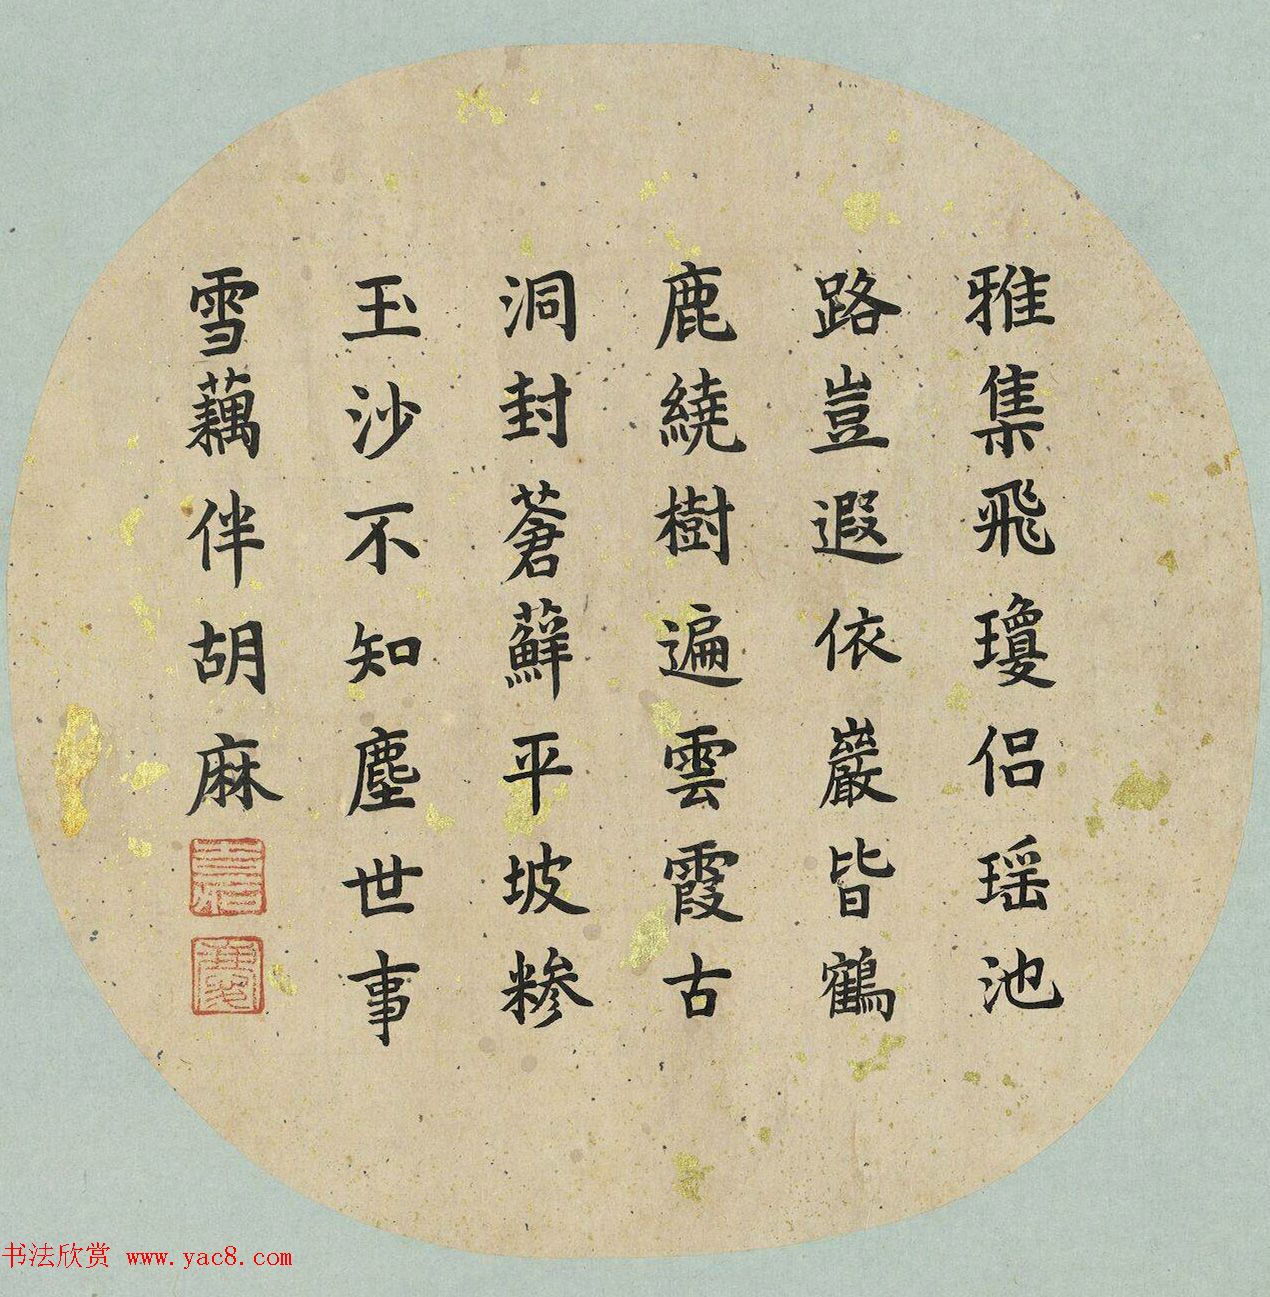 雅集飛瓊侶瑶池
路豈遐依巖皆鶴
鹿繞樹遍雲霞古
洞封蒼蘚平坡糝
玉沙不知塵世事
雪藕伴胡麻
书法欣赏 www.yac8.com